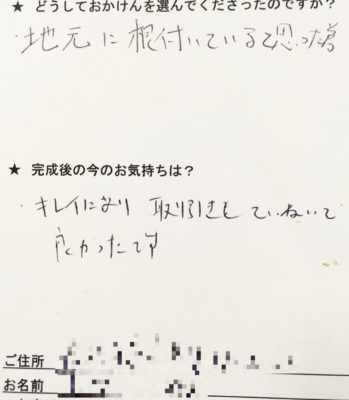 ★ どうしておかけんを選んでくださったのですか？
・地元に根付いていると思った為
★ 完成後の今のお気持ちは？
・キレイになり 取引きも ていねいで
良かったです
ご住所
お名前